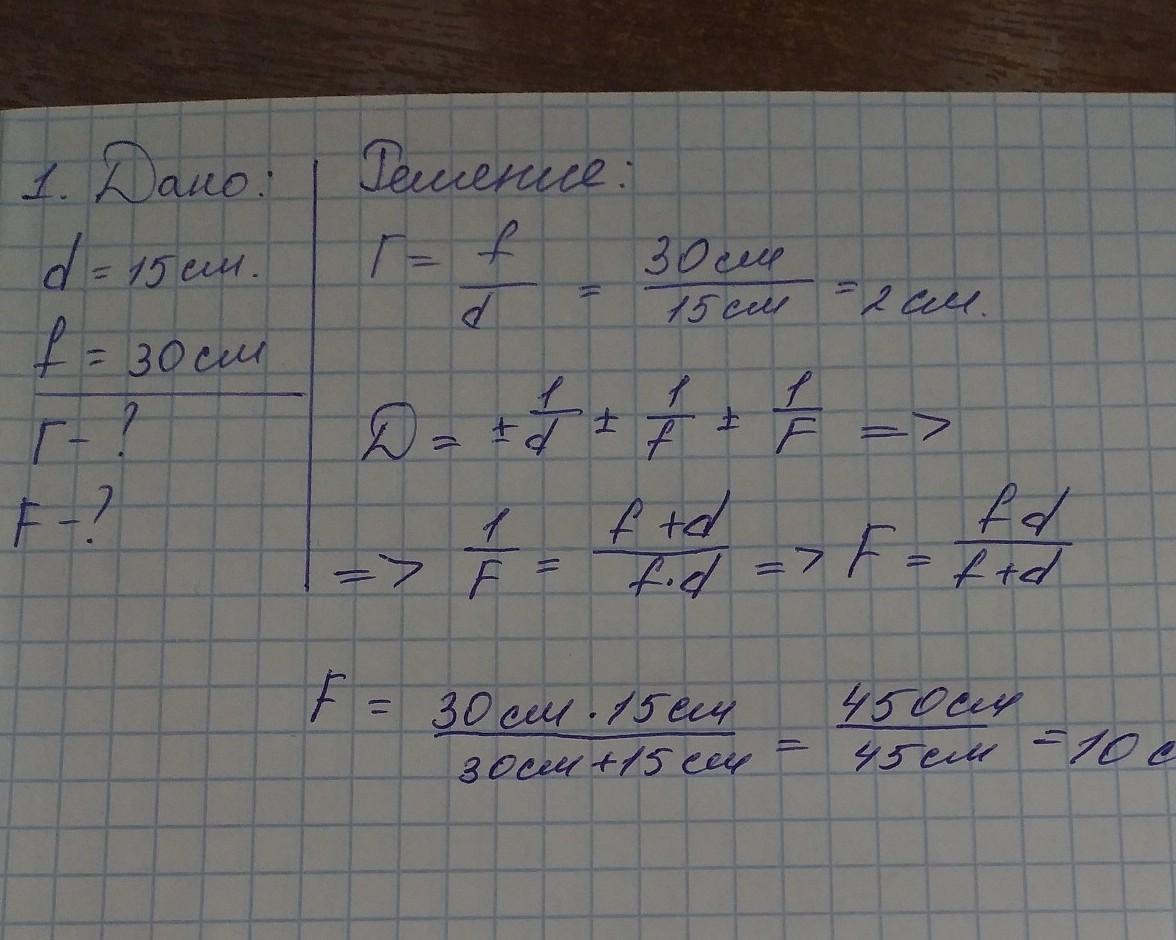 1. Дано:
d = 15 см.
f = 30 см
Г - ?
F - ?
Решение:
Г = f/d = 30 см/15 см = 2 см.
D = ± 1/d ± 1/f ± 1/F =>
=> 1/F = f + d/f · d => F = f d/f + d
F = 30 см · 15 см/30 см + 15 см = 450 см/45 см = 10 с